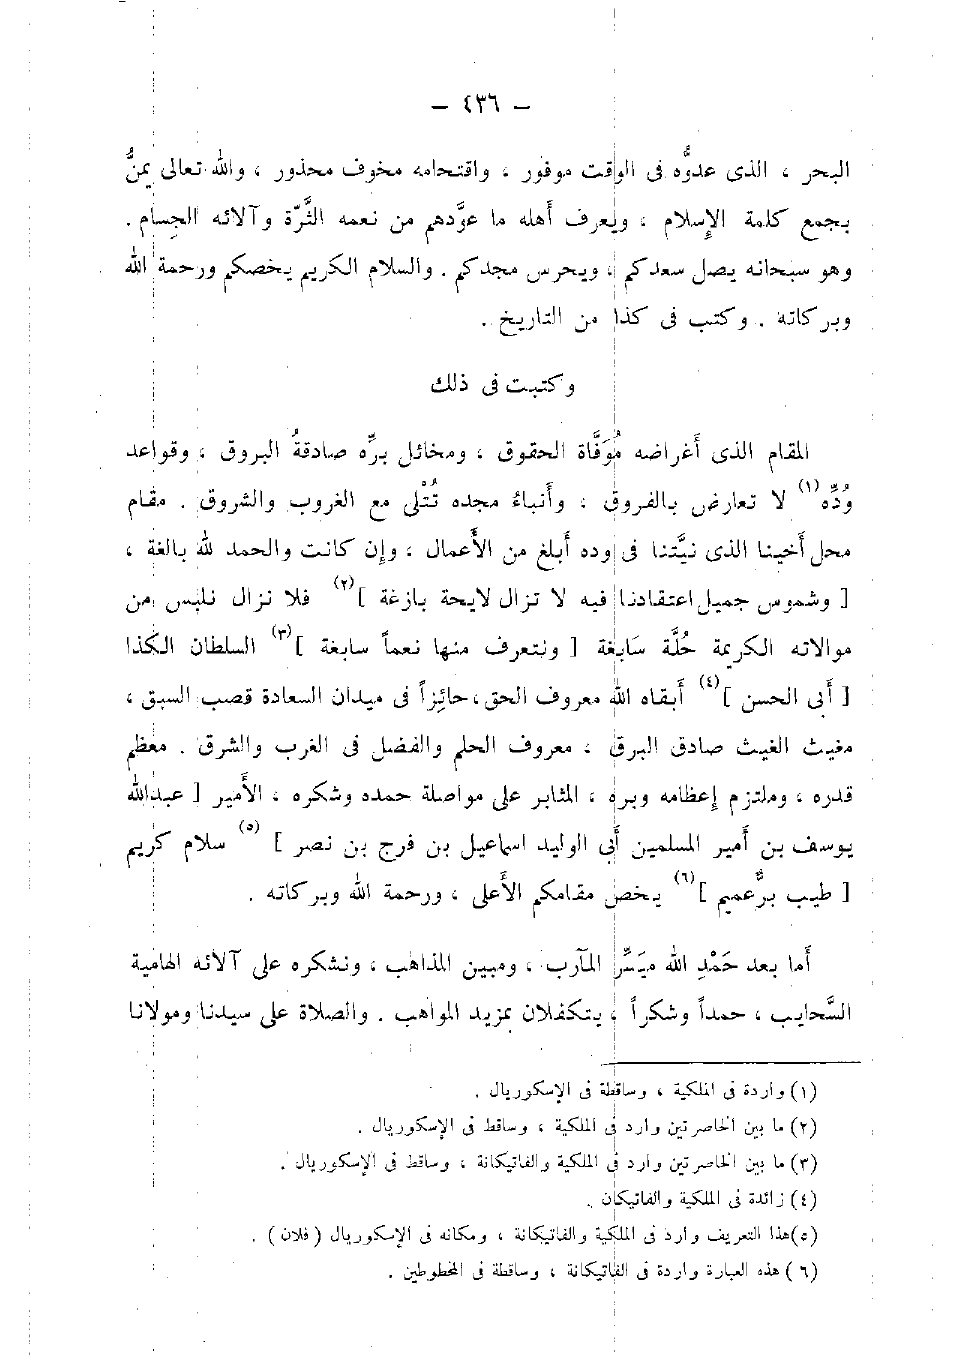 — ٤٣٦ —
البحر ، الذى عدوُّه فى الوقت موفور ، واقتحامه مخوف محذور ، والله تعالى يمنُّ
بجمع كلمة الإسلام ، ويعرف أهله ما عوَّدهم من نعمه الثَّرّة وآلائه الجِسام .
وهو سبحانه يصل سعدكم ، ويحرس مجدكم . والسلام الكريم يخصكم ورحمة الله
وبركاته . وكتب فى كذا من التاريخ .
وكتبت فى ذلك
المقام الذى أغراضه مُوَفَّاة الحقوق ، ومخائل برِّه صادقةُ البروق ، وقواعد
وُدِّه (١) لا تعارض بالفروق ، وأنباءُ مجده تُتْلى مع الغروب والشروق . مقام
محل أخينا الذى نيَّتنا فى وده أبلغ من الأعمال ، وإن كانت والحمد لله بالغة ،
[ وشموس جميل اعتقادنا فيه لا تزال لايحة بازغة ] (٢) فلا نزال نلبس من
موالاته الكريمة حُلَّة سَابغة [ ونتعرف منها نعماً سابغة ] (٣) السلطان الكذا
[ أبى الحسن ] (٤) أبقاه الله معروف الحق ، حائِزاً فى ميدان السعادة قصب السبق ،
مغيث الغيث صادق البرق ، معروف الحلم والفضل فى الغرب والشرق . معظم
قدره ، وملتزم إعظامه وبره ، المثابر على مواصلة حمده وشكره ، الأمير [ عبدالله
يوسف بن أمير المسلمين أبى الوليد اسماعيل بن فرج بن نصر ] (٥) سلام كريم
[ طيب برٌّ عميم ] (٦) يخص مقامكم الأعلى ، ورحمة الله وبركاته .
أما بعد حَمْدِ الله ميَسِّر المآرب ، ومبين المذاهب ، ونشكره على آلائه الهامية
السَّحايب ، حمداً وشكراً ، يتكفلان بمزيد المواهب . والصلاة على سيدنا ومولانا
(١) واردة فى الملكية ، وساقطة فى الإسكوريال .
(٢) ما بين الحاصرتين وارد فى الملكية ، وساقط فى الإسكوريال .
(٣) ما بين الحاصرتين وارد فى الملكية والفاتيكانة ، وساقط فى الإسكوريال .
(٤) زائدة فى الملكية والفاتيكان .
(٥) هذا التعريف وارد فى الملكية والفاتيكانة ، ومكانه فى الإسكوريال ( فلان ) .
(٦) هذه العبارة واردة فى الفاتيكانة ، وساقطة فى المخطوطين .